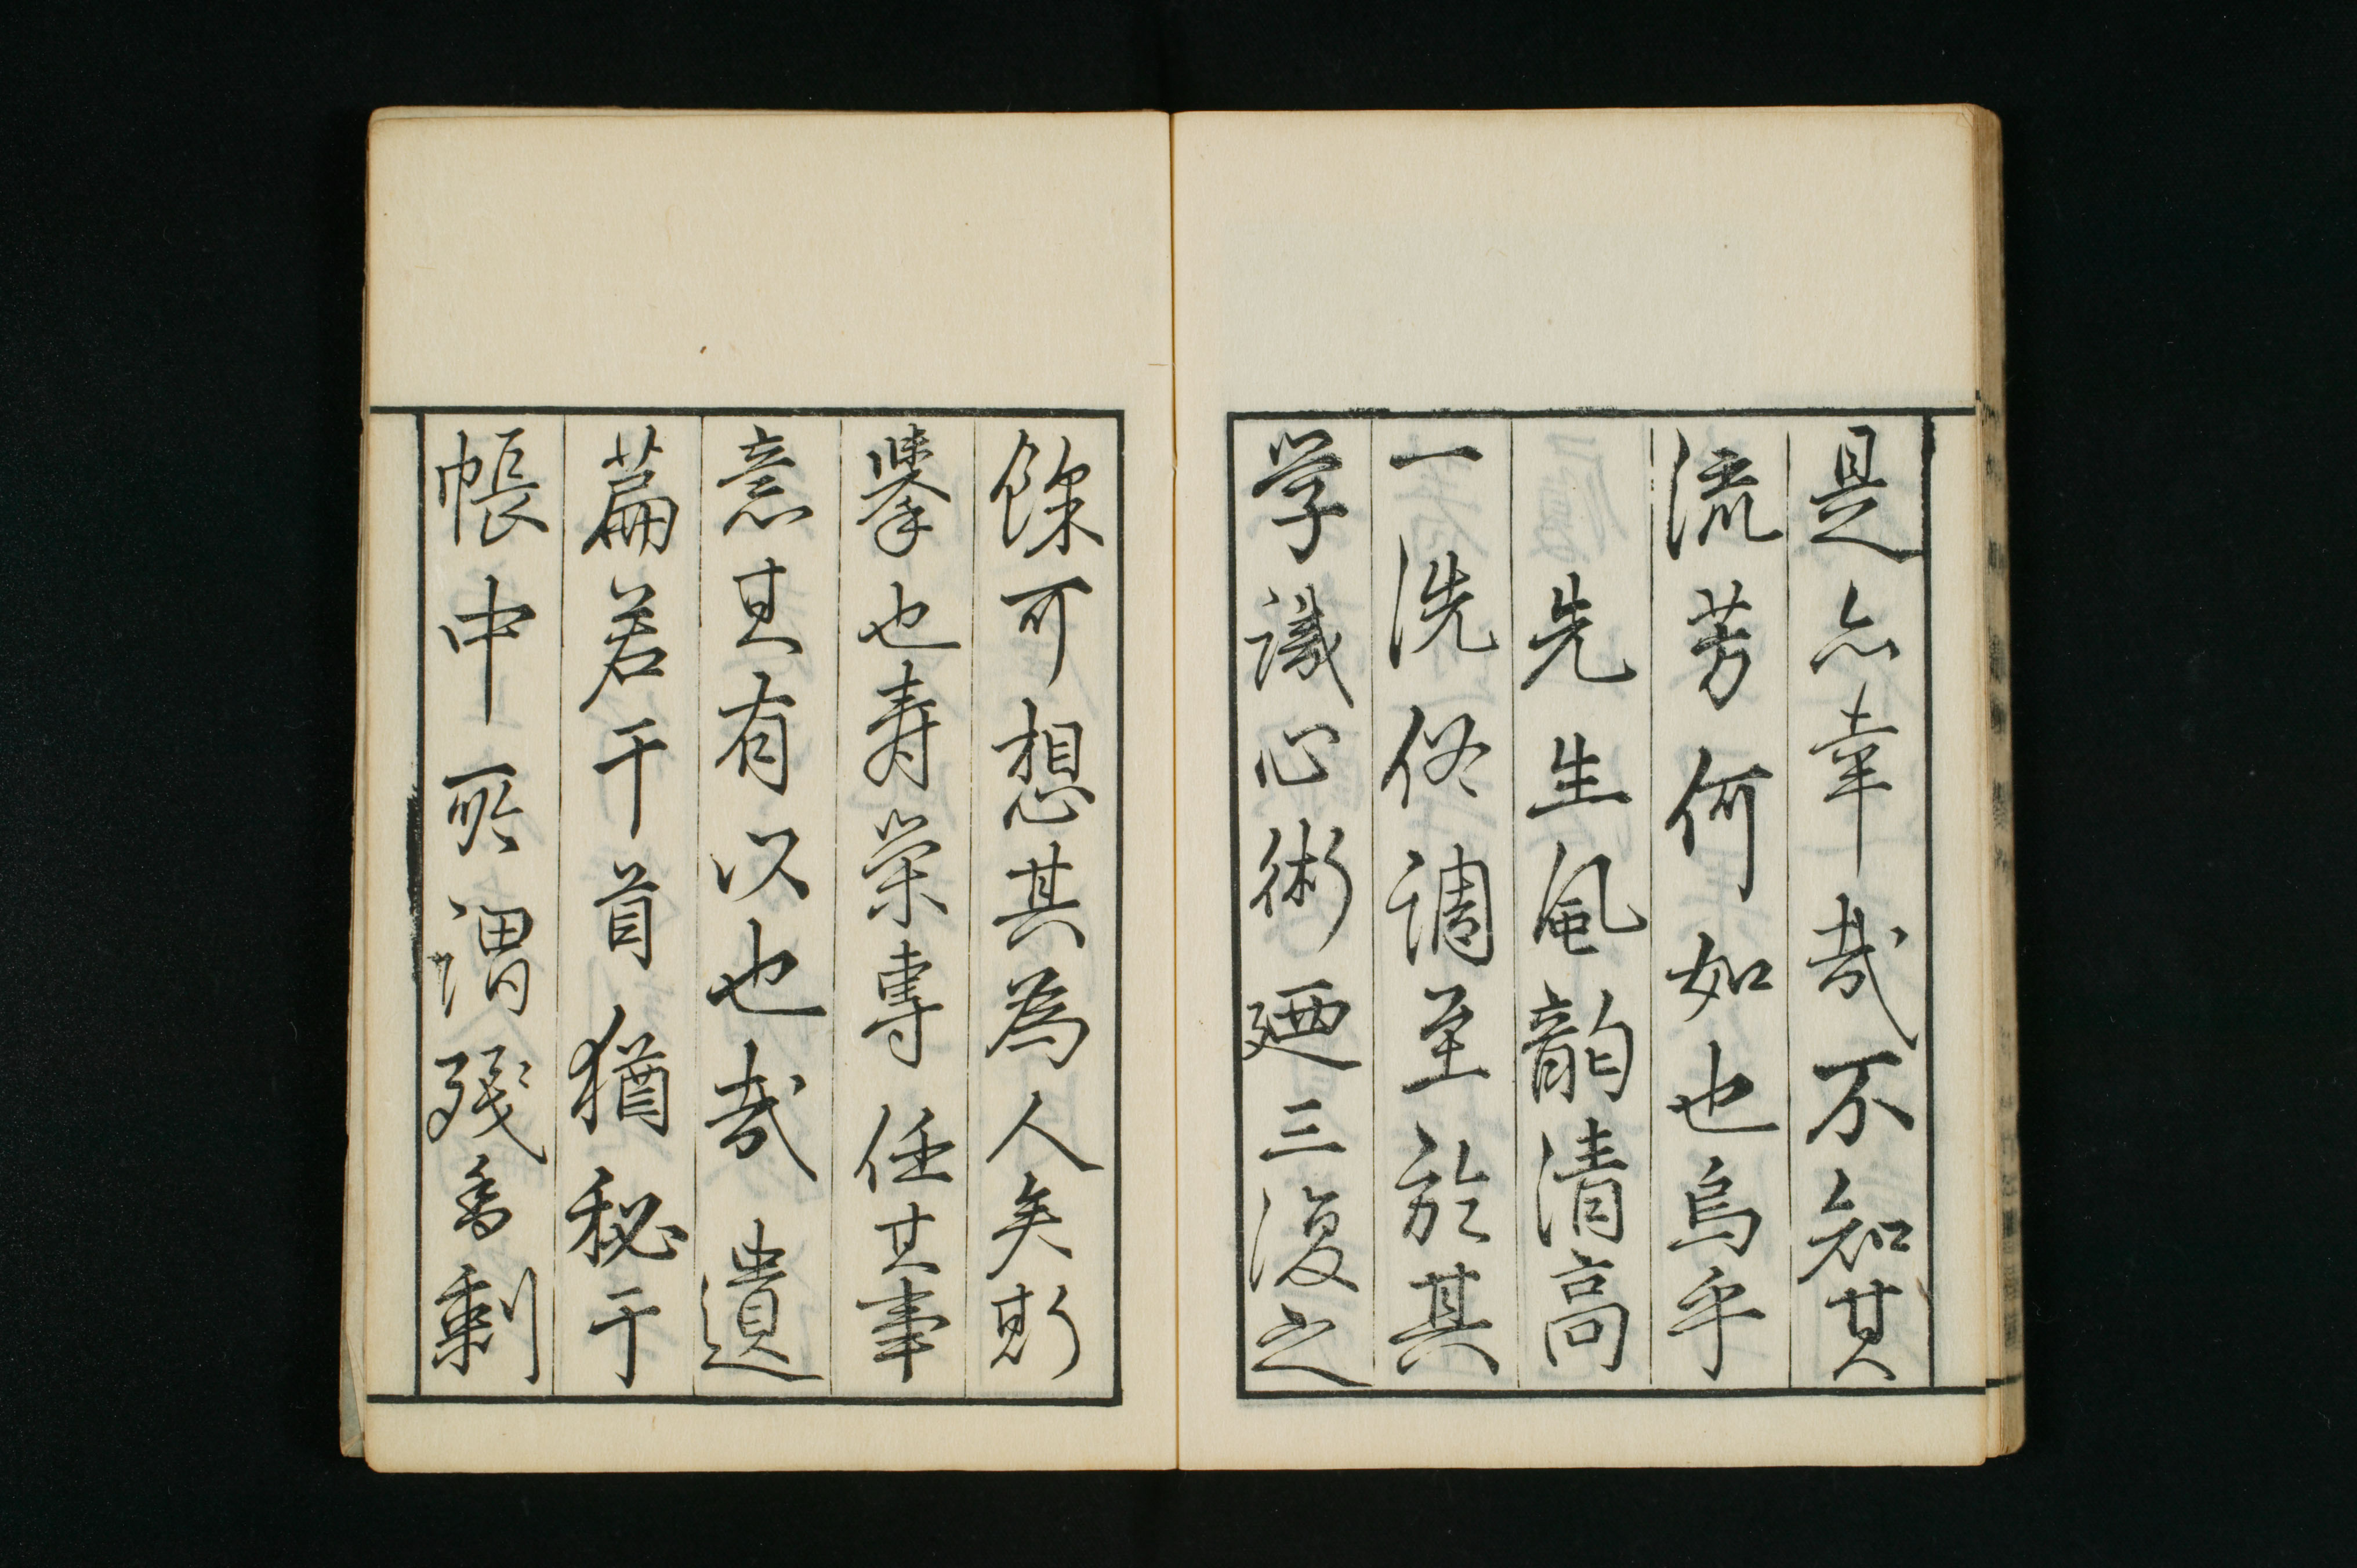 是亦幸哉不知其
流芳何如也烏乎
先生風韵清高
一洗俗調至於其
学識心術廼三復之
餘可想其為人矣斯
挙也寿栄専任其事
意其有以也哉遺
篇若干首猶秘于
帳中所謂残香剰